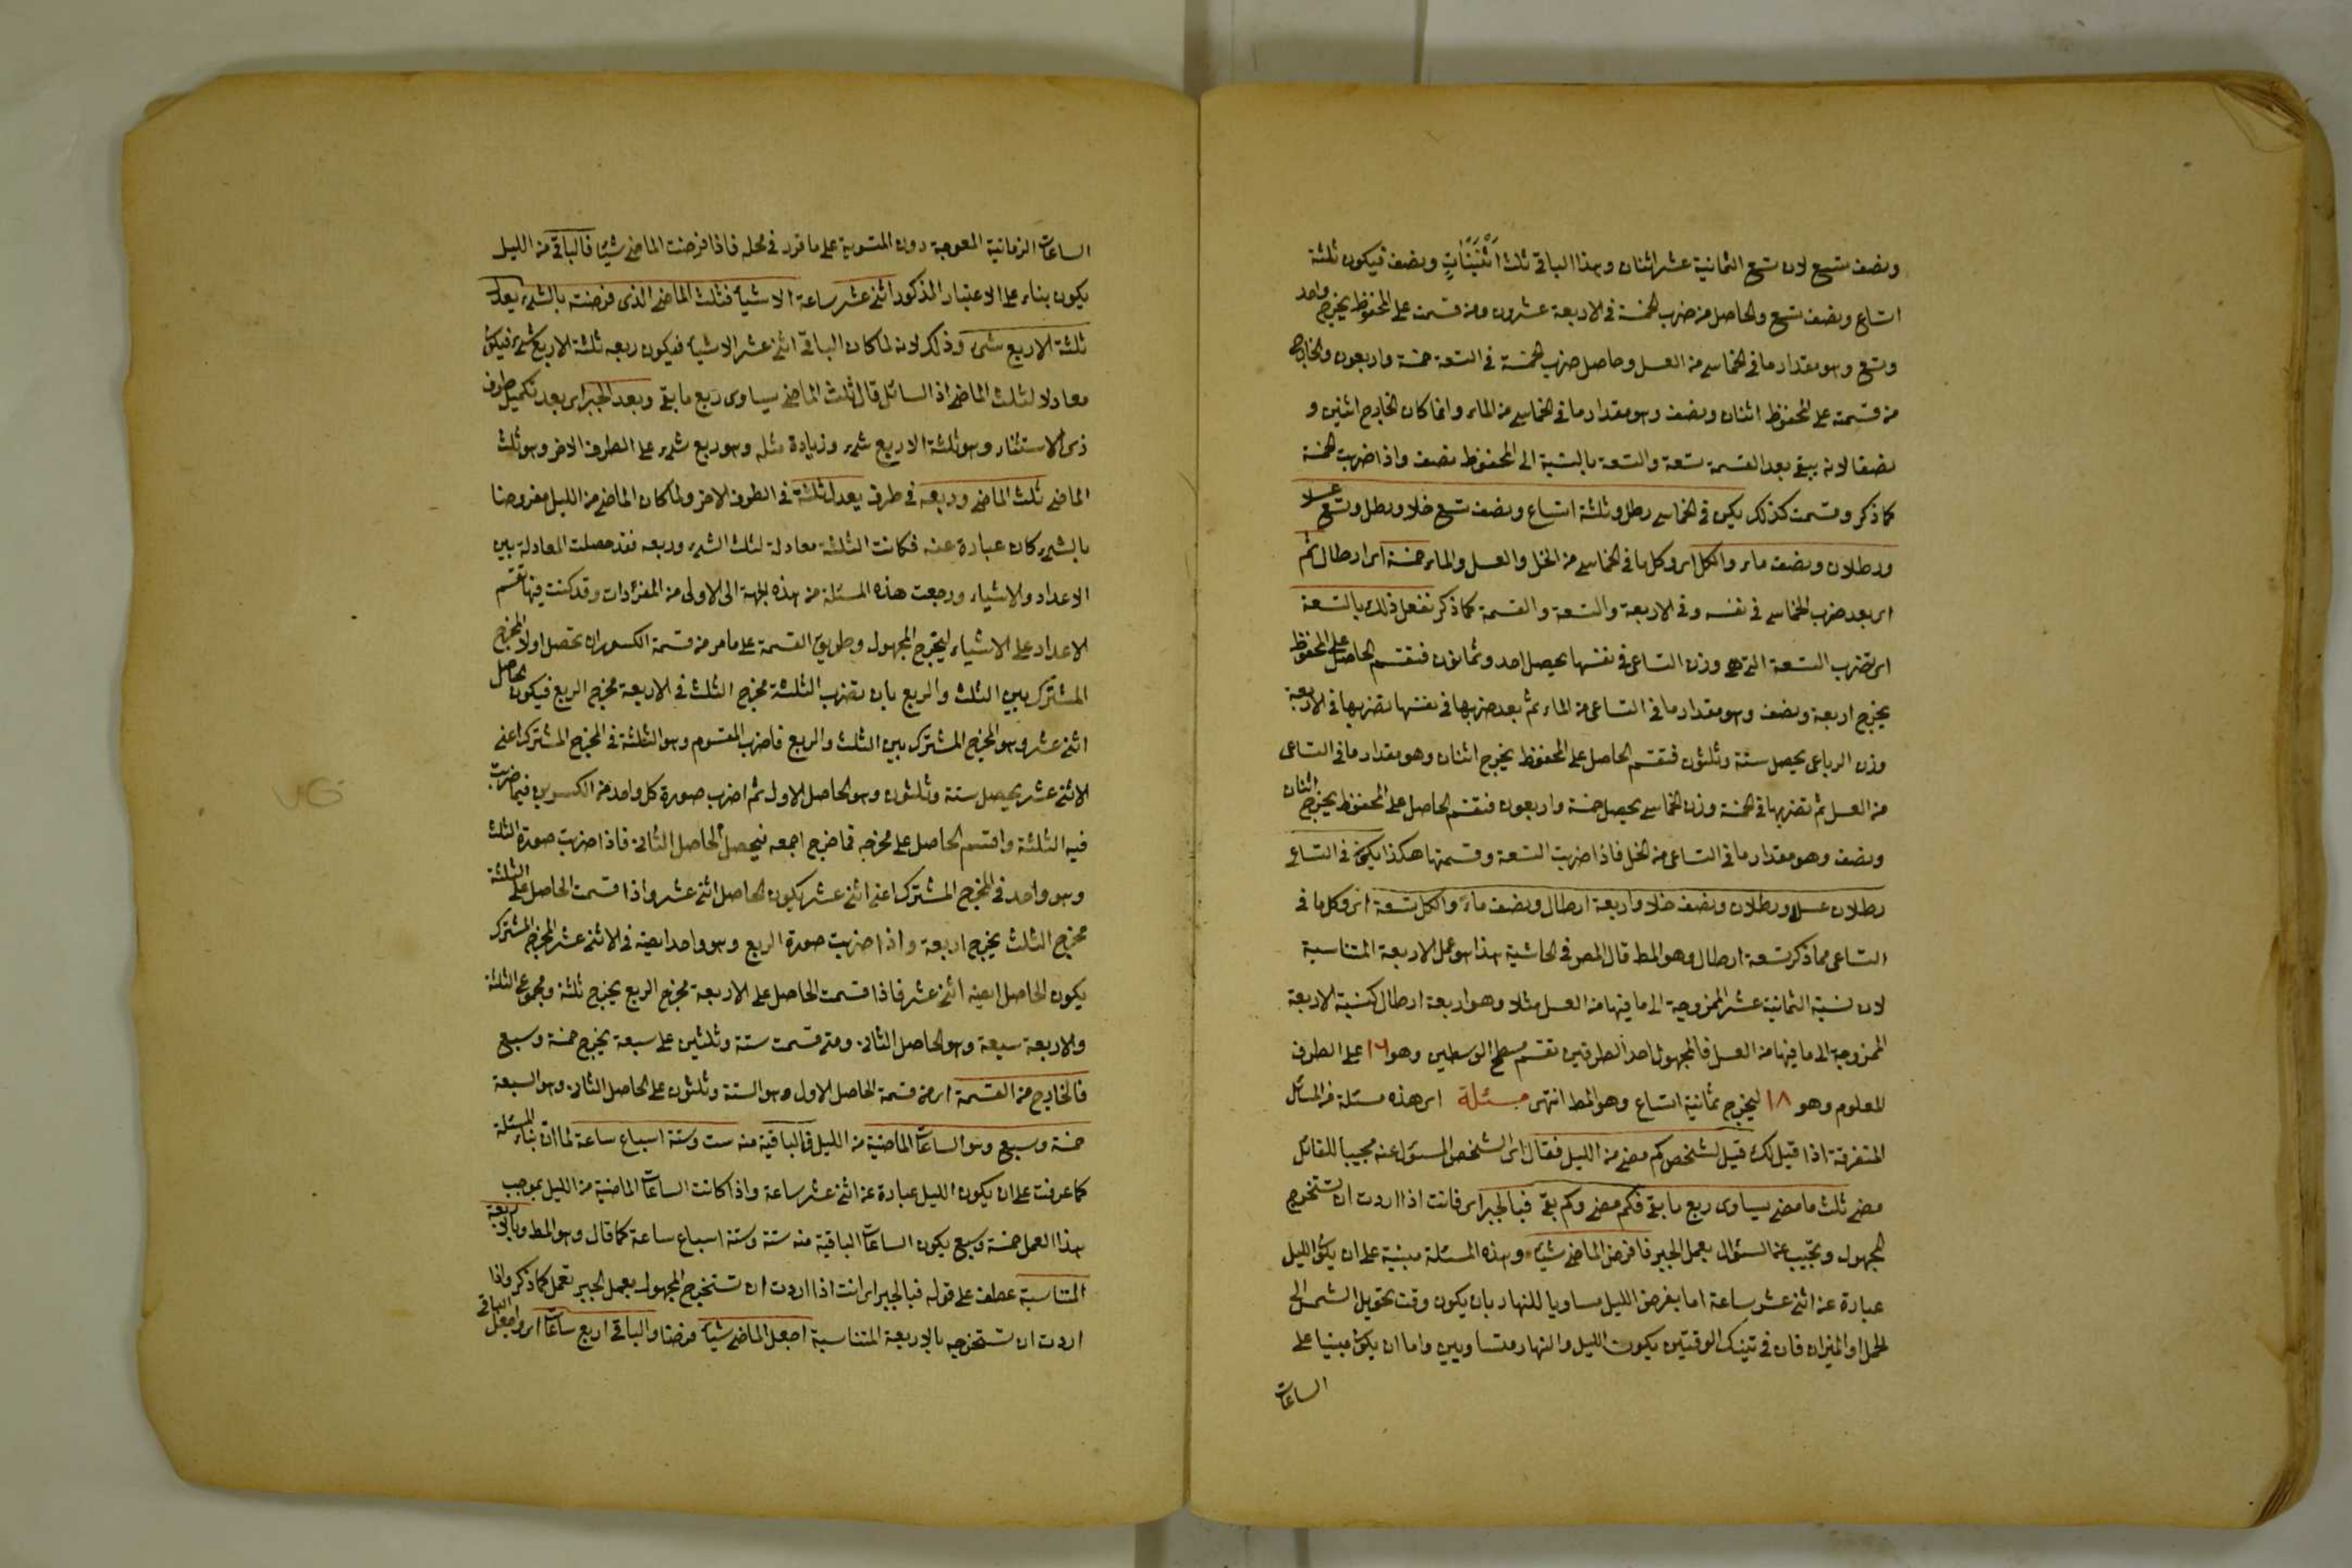 ونصف تسع لان تسع الثمانية عشر اثنان وهذا الباقى ثلث اثنينات ونصف فيكون ثلثة
اتساع ونصف تسع والحاصل من ضرب الخمسة فى الاربعة عشرون ومن قسمته على المحفوظ يخرج واحد
وتسع وهو مقدار ما فى الخماسى من العسل وحاصل ضرب الخمسة فى التسعة خمسة واربعون والخارج
من قسمته على المحفوظ اثنان ونصف وهو مقدار ما فى الخماسى من الماء وانما كان الخارج اثنين و
نصفا لانه يبقى بعد القسمة تسعة والتسعة بالنسبة الى المحفوظ نصف واذا ضربت الخمسة
كما ذكر وقسمت كذلك يكون فى الخماسى رطل وثلثة اتساع ونصف تسع خلا ورطل وتسع عسلا
ورطلان ونصف ماء والكل اى وكل ما فى الخماسى من الخل والعسل والماء خمسة اى ارطال ثم
اى بعد ضرب الخماسى فى نفسه وفى الاربعة والتسعة والقسمة كما ذكر تفعل ذلك بالتسعة
اى تضرب التسعة التى هى وزن التساعى فى نفسها يحصل احد وثمانون فتقسم الحاصل على المحفوظ
يخرج اربعة ونصف وهو مقدار ما فى التساعى من الماء ثم بعد ضربها فى نفسها تضربها فى الاربعة
وزن الرباعى يحصل ستة وثلثون فتقسم الحاصل على المحفوظ يخرج اثنان وهو مقدار ما فى التساعى
من العسل ثم تضربها فى الخمسة وزن الخماسى يحصل خمسة واربعون فتقسم الحاصل على المحفوظ يخرج اثنان
ونصف وهو مقدار ما فى التساعى من الخل فاذا ضربت التسعة وقسمتها هكذا يكون فى التساعى
رطلان عسلا ورطلان ونصف خلا واربعة ارطال ونصف ماء والكل تسعة اى وكل ما فى
التساعى مما ذكر تسعة ارطال وهو المط قال المص فى الحاشية هذا هو عمل الاربعة المتناسبة
لان نسبة الثمانية عشر الممزوجة الى ما فيها من العسل مثلا وهو اربعة ارطال كنسبة الاربعة
الممزوجة الى ما فيها من العسل فالمجهول احد الطرفين تقسم مسطح الوسطين وهو ١٦ على الطرف
المعلوم وهو ١٨ ليخرج ثمانية اتساع وهو المط انتهى مسئلة اى هذه مسئلة من المسائل
المتفرقة اذا قيل لك قيل لشخص كم مضى من الليل فقال اى الشخص المسئول عنه مجيبا للقائل
مضى ثلث ما مضى يساوى ربع ما بقى فكم مضى وكم بقى فبالجبر اى فانت اذا اردت ان تستخرج
المجهول وتجيب عن السؤال بعمل الجبر فافرض الماضى شيئا وهذه المسئلة مبنية على ان يكون الليل
عبارة عن اثنى عشر ساعة اما بفرض الليل مساويا للنهار بان يكون وقت تحويل الشمس الى
الحمل او الميزان فان فى تينك الوقتين يكون الليل والنهار متساويين واما ان يكون مبنيا على
الساعات
الساعات الزمانية المعوجة دون المستوية على ما قرر فى محله فاذا فرضت الماضى شيئا فالباقى من الليل
يكون بناء على الاعتبار المذكور اثنى عشر ساعة الا شيئا فثلث الماضى الذى فرضته بالشىء يعدل
ثلثة الا ربع شىء وذلك لانه لما كان الباقى اثنى عشر الا شيئا فيكون ربعه ثلثة الا ربع شىء فيكون
معادلا لثلث الماضى اذ السائل قال ثلث الماضى يساوى ربع ما بقى وبعد الجبر اى بعد تكميل طرف
ذى الاستثناء وهو ثلثة الا ربع شىء وزيادة مثله وهو ربع شىء على الطرف الاخر وهو ثلث
الماضى ثلث الماضى وربعه فى طرف يعدل ثلثة فى الطرف الاخر ولما كان الماضى من الليل مفروضا
بالشىء كان عبارة عنه فكانت الثلثة معادلة لثلث الشىء وربعه فقد حصلت المعادلة بين
الاعداد والاشياء ورجعت هذه المسئلة من هذه الجهة الى الاولى من المفردات وقد كنت فيها تقسم
الاعداد على الاشياء ليخرج المجهول وطريق القسمة على ما مر من قسمة الكسور ان تحصل اولا المخرج
المشترك بين الثلث والربع بان تضرب الثلثة مخرج الثلث فى الاربعة مخرج الربع فيكون الحاصل
اثنى عشر وهو المخرج المشترك بين الثلث والربع فاضرب المقسوم وهو الثلثة فى المخرج المشترك اعنى
الاثنى عشر يحصل ستة وثلثون وهو الحاصل الاول ثم اضرب صورة كل واحد من الكسرين فيما ضربت
فيه الثلثة واقسم الحاصل على مخرجه فما خرج اجمعه فيحصل الحاصل الثانى فاذا ضربت صورة الثلث
وهو واحد فى المخرج المشترك اعنى اثنى عشر يكون الحاصل اثنى عشر واذا قسمت الحاصل على الثلثة
مخرج الثلث يخرج اربعة واذا ضربت صورة الربع وهو واحد ايضا فى الاثنى عشر المخرج المشترك
يكون الحاصل ايضا اثنى عشر فاذا قسمت الحاصل على الاربعة مخرج الربع يخرج ثلثة ومجموع الثلثة
والاربعة سبعة وهو الحاصل الثانى ومتى قسمت ستة وثلثين على سبعة يخرج خمسة وسبع
فالخارج من القسمة اى من قسمة الحاصل الاول وهو الستة وثلثون على الحاصل الثانى وهو السبعة
خمسة وسبع وهو الساعات الماضية من الليل فالباقية منه ست وستة اسباع ساعة لما ان بناء المسئلة
كما عرفت على ان يكون الليل عبارة عن اثنى عشر ساعة واذا كانت الساعات الماضية من الليل بموجب
هذا العمل خمسة وسبع يكون الساعات الباقية منه ستة وستة اسباع ساعة كما قال وهو المط وبالاربعة
المتناسبة عطف على قوله فبالجبر اى انت اذا اردت ان تستخرج المجهول بعمل الجبر تعمل كما ذكر واذا
اردت ان تستخرجه بالاربعة المتناسبة اجعل الماضى شيئا فرضا والباقى اربع ساعات اى واجعل الباقى